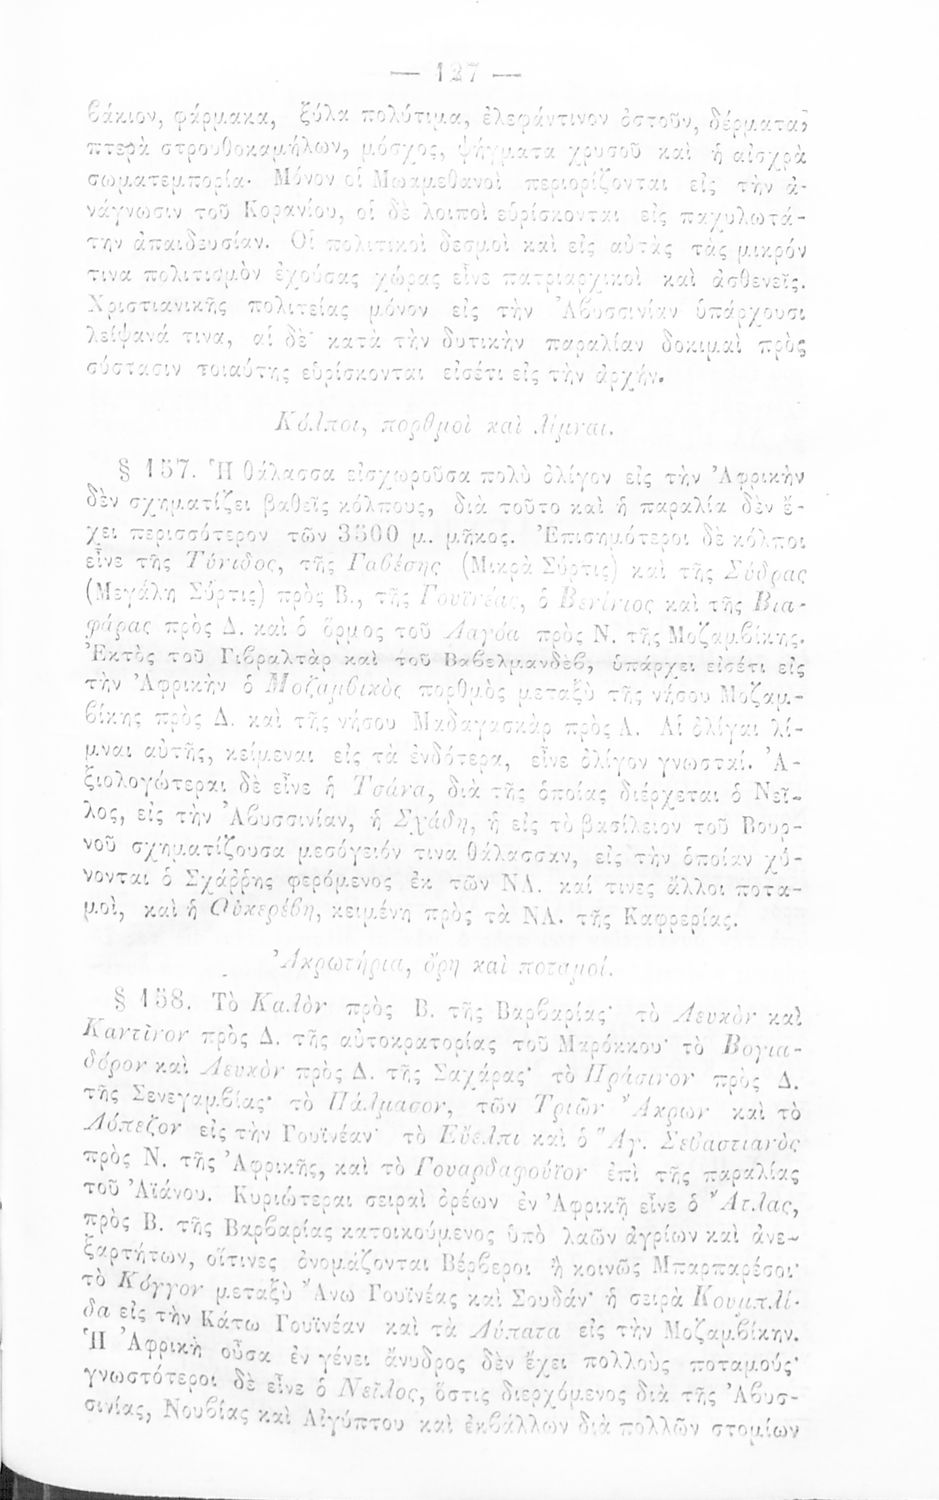 — 127 —
βάκιον, φάρμακα, ξύλα πολύτιμα, ἐλεφάντινον ὀστοῦν, δέρματα,
πτερὰ στρουθοκαμήλων, μόσχος, ψήγματα χρυσοῦ καὶ ἡ αἰσχρὰ
σωματεμπορία· Μόνον οἱ Μωαμεθανοὶ περιορίζονται εἰς τὴν ἀ-
νάγνωσιν τοῦ Κορανίου, οἱ δὲ λοιποὶ εὑρίσκονται εἰς παχυλωτά-
την ἀπαιδευσίαν. Οἱ πολιτικοὶ δεσμοὶ καὶ εἰς αὐτὰς τὰς μικρόν
τινα πολιτισμὸν ἐχούσας χώρας εἶνε πατριαρχικοὶ καὶ ἀσθενεῖς.
Χριστιανικῆς πολιτείας μόνον εἰς τὴν Ἀβυσσινίαν ὑπάρχουσι
λείψανά τινα, αἱ δὲ κατὰ τὴν δυτικὴν παραλίαν δοκιμαὶ πρὸς
σύστασιν τοιαύτης εὑρίσκονται εἰσέτι εἰς τὴν ἀρχήν.
Κόλποι, πορθμοὶ καὶ λίμναι.
§ 157. Ἡ θάλασσα εἰσχωροῦσα πολὺ ὀλίγον εἰς τὴν Ἀφρικὴν
δὲν σχηματίζει βαθεῖς κόλπους, διὰ τοῦτο καὶ ἡ παραλία δὲν ἔ-
χει περισσότερον τῶν 3500 μ. μῆκος. Ἐπισημότεροι δὲ κόλποι
εἶνε τῆς Τύνιδος, τῆς Γαβέσης (Μικρὰ Σύρτις) καὶ τῆς Σύδρας
(Μεγάλη Σύρτις) πρὸς Β., τῆς Γουϊνέας, ὁ Βενίνιος καὶ τῆς Βια-
φάρας πρὸς Δ. καὶ ὁ ὅρμος τοῦ Λαγόα πρὸς Ν. τῆς Μοζαμβίκης.
Ἐκτὸς τοῦ Γιβραλτὰρ καὶ τοῦ Βαβελμανδὲβ, ὑπάρχει εἰσέτι εἰς
τὴν Ἀφρικὴν ὁ Μοζαμβικὸς πορθμὸς μεταξὺ τῆς νήσου Μοζαμ-
βίκης πρὸς Δ. καὶ τῆς νήσου Μαδαγασκὰρ πρὸς Α. Αἱ ὀλίγαι λί-
μναι αὐτῆς, κείμεναι εἰς τὰ ἐνδότερα, εἶνε ὀλίγον γνωσταί. Ἀ-
ξιολογώτεραι δὲ εἶνε ἡ Τσάνα, διὰ τῆς ὁποίας διέρχεται ὁ Νεῖ-
λος, εἰς τὴν Ἀβυσσινίαν, ἡ Σχάδη, ἡ εἰς τὸ βασίλειον τοῦ Βουρ-
νοῦ σχηματίζουσα μεσόγειόν τινα θάλασσαν, εἰς τὴν ὁποίαν χύ-
νονται ὁ Σχάρρης φερόμενος ἐκ τῶν ΝΑ. καί τινες ἄλλοι ποτα-
μοὶ, καὶ ἡ Οὐκερέβη, κειμένη πρὸς τὰ ΝΑ. τῆς Καφρερίας.
Ἀκρωτήρια, ὄρη καὶ ποταμοί.
§ 158. Τὸ Καλὸν πρὸς Β. τῆς Βαρβαρίας· τὸ Λευκὸν καὶ
Καντῖνον πρὸς Δ. τῆς αὐτοκρατορίας τοῦ Μαρόκκου· τὸ Βογια-
δόρον καὶ Λευκὸν πρὸς Δ. τῆς Σαχάρας· τὸ Πράσινον πρὸς Δ.
τῆς Σενεγαμβίας· τὸ Πάλμασον, τῶν Τριῶν Ἄκρων καὶ τὸ
Λόπεζον εἰς τὴν Γουϊνέαν· τὸ Εὔελπι καὶ ὁ Ἅγ. Σεβαστιανὸς
πρὸς Ν. τῆς Ἀφρικῆς, καὶ τὸ Γουαρδαφούϊον ἐπὶ τῆς παραλίας
τοῦ Ἀϊάνου. Κυριώτεραι σειραὶ ὀρέων ἐν Ἀφρικῇ εἶνε ὁ Ἄτλας,
πρὸς Β. τῆς Βαρβαρίας κατοικούμενος ὑπὸ λαῶν ἀγρίων καὶ ἀνε-
ξαρτήτων, οἵτινες ὀνομάζονται Βέρβεροι ἢ κοινῶς Μπαρπαρέσοι·
τὸ Κόγγον μεταξὺ Ἄνω Γουϊνέας καὶ Σουδάν· ἡ σειρὰ Κουμπλί-
δα εἰς τὴν Κάτω Γουϊνέαν καὶ τὰ Λύπατα εἰς τὴν Μοζαμβίκην.
Ἡ Ἀφρικὴ οὖσα ἐν γένει ἄνυδρος δὲν ἔχει πολλοὺς ποταμούς·
γνωστότεροι δὲ εἶνε ὁ Νεῖλος, ὅστις διερχόμενος διὰ τῆς Ἀβυσ-
σινίας, Νουβίας καὶ Αἰγύπτου καὶ ἐκβάλλων διὰ πολλῶν στομίων